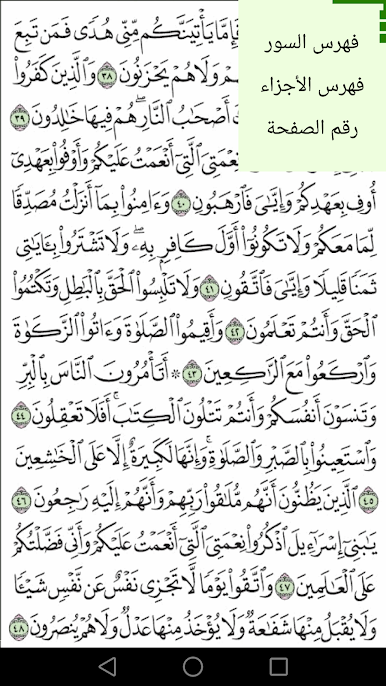 فهرس السور
فهرس الأجزاء
رقم الصفحة
فَإِمَّا يَأْتِيَنَّكُم مِّنِّى هُدًى فَمَن تَبِعَ
وَلَا هُمْ يَحْزَنُونَ ٣٨ وَٱلَّذِينَ كَفَرُوا۟
أَصْحَٰبُ ٱلنَّارِ هُمْ فِيهَا خَٰلِدُونَ ٣٩
نِعْمَتِىَ ٱلَّتِىٓ أَنْعَمْتُ عَلَيْكُمْ وَأَوْفُوا۟ بِعَهْدِىٓ
أُوفِ بِعَهْدِكُمْ وَإِيَّٰىَ فَٱرْهَبُونِ ٤٠ وَءَامِنُوا۟ بِمَآ أَنزَلْتُ مُصَدِّقًا
لِّمَا مَعَكُمْ وَلَا تَكُونُوٓا۟ أَوَّلَ كَافِرٍۭ بِهِۦ ۖ وَلَا تَشْتَرُوا۟ بِـَٔايَٰتِى
ثَمَنًا قَلِيلًا وَإِيَّٰىَ فَٱتَّقُونِ ٤١ وَلَا تَلْبِسُوا۟ ٱلْحَقَّ بِٱلْبَٰطِلِ وَتَكْتُمُوا۟
ٱلْحَقَّ وَأَنتُمْ تَعْلَمُونَ ٤٢ وَأَقِيمُوا۟ ٱلصَّلَوٰةَ وَءَاتُوا۟ ٱلزَّكَوٰةَ
وَٱرْكَعُوا۟ مَعَ ٱلرَّٰكِعِينَ ٤٣ ۞ أَتَأْمُرُونَ ٱلنَّاسَ بِٱلْبِرِّ
وَتَنسَوْنَ أَنفُسَكُمْ وَأَنتُمْ تَتْلُونَ ٱلْكِتَٰبَ ۚ أَفَلَا تَعْقِلُونَ ٤٤
وَٱسْتَعِينُوا۟ بِٱلصَّبْرِ وَٱلصَّلَوٰةِ ۚ وَإِنَّهَا لَكَبِيرَةٌ إِلَّا عَلَى ٱلْخَٰشِعِينَ
٤٥ ٱلَّذِينَ يَظُنُّونَ أَنَّهُم مُّلَٰقُوا۟ رَبِّهِمْ وَأَنَّهُمْ إِلَيْهِ رَٰجِعُونَ ٤٦
يَٰبَنِىٓ إِسْرَٰٓءِيلَ ٱذْكُرُوا۟ نِعْمَتِىَ ٱلَّتِىٓ أَنْعَمْتُ عَلَيْكُمْ وَأَنِّى فَضَّلْتُكُمْ
عَلَى ٱلْعَٰلَمِينَ ٤٧ وَٱتَّقُوا۟ يَوْمًا لَّا تَجْزِى نَفْسٌ عَن نَّفْسٍ شَيْـًٔا
وَلَا يُقْبَلُ مِنْهَا شَفَٰعَةٌ وَلَا يُؤْخَذُ مِنْهَا عَدْلٌ وَلَا هُمْ يُنصَرُونَ ٤٨